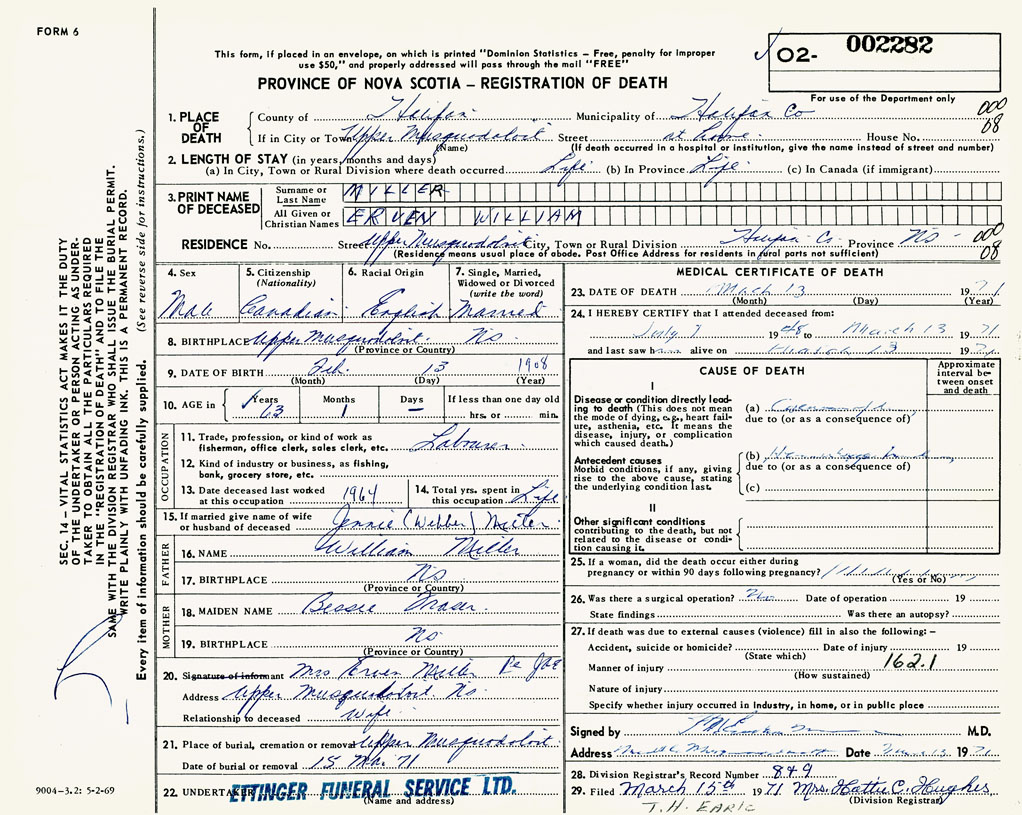 FORM 6
This form, if placed in an envelope, on which is printed "Dominion Statistics — Free, penalty for improper
use $50," and properly addressed will pass through the mail "FREE"
PROVINCE OF NOVA SCOTIA — REGISTRATION OF DEATH
O2- 002282
For use of the Department only
1. PLACE OF DEATH
County of Halifax Municipality of Halifax Co 000
If in City or Town Upper Musquodoboit Street at home House No. 08
(Name) (If death occurred in a hospital or institution, give the name instead of street and number)
2. LENGTH OF STAY (in years, months and days)
(a) In City, Town or Rural Division where death occurred Life (b) In Province Life (c) In Canada (if immigrant)
3. PRINT NAME OF DECEASED
Surname or Last Name MILLER
All Given or Christian Names ERVEN WILLIAM
RESIDENCE No. Street Upper Musquodoboit City, Town or Rural Division Halifax Co. Province NS 000
(Residence means usual place of abode. Post Office Address for residents in rural parts not sufficient) 08
4. Sex Male
5. Citizenship (Nationality) Canadian
6. Racial Origin English
7. Single, Married, Widowed or Divorced (write the word) Married
8. BIRTHPLACE Upper Musquodoboit. NS
(Province or Country)
9. DATE OF BIRTH Feb. 13 1908
(Month) (Day) (Year)
10. AGE in Years 63 Months 1 Days — If less than one day old hrs. or min.
OCCUPATION
11. Trade, profession, or kind of work as
fishermon, office clerk, sales clerk, etc. Labourer
12. Kind of industry or business, as fishing,
bank, grocery store, etc.
13. Date deceased last worked at this occupation 1964
14. Total yrs. spent in this occupation Life
15. If married give name of wife or husband of deceased Jennie (Webber) Miller
FATHER
16. NAME William Miller
17. BIRTHPLACE NS
(Province or Country)
MOTHER
18. MAIDEN NAME Bessie Fraser
19. BIRTHPLACE NS
(Province or Country)
20. Signature of informant Mrs Erven Miller
Address Upper Musquodoboit. NS
Relationship to deceased Wife
21. Place of burial, cremation or removal Upper Musquodoboit
Date of burial or removal 15 Mar 71
22. UNDERTAKER ETTINGER FUNERAL SERVICE LTD.
(Name and address)
MEDICAL CERTIFICATE OF DEATH
23. DATE OF DEATH March 13 1971
(Month) (Day) (Year)
24. I HEREBY CERTIFY that I attended deceased from:
July 1948 to March 13 1971
and last saw h alive on March 13 1971
CAUSE OF DEATH
Approximate interval between onset and death
I
Disease or condition directly lead-
ing to death (This does not mean
the mode of dying, e.g., heart fail-
ure, asthenia, etc. It means the
disease, injury, or complication
which caused death.)
(a)
due to (or as a consequence of)
Antecedent causes
Morbid conditions, if any, giving
rise to the above cause, stating
the underlying condition last.
(b)
due to (or as a consequence of)
(c)
II
Other significant conditions
contributing to the death, but not
related to the disease or condi-
tion causing it.
25. If a woman, did the death occur either during
pregnancy or within 90 days following pregnancy?
(Yes or No)
26. Was there a surgical operation? No Date of operation 19
State findings Was there an autopsy?
27. If death was due to external causes (violence) fill in also the following: —
Accident, suicide or homicide? Date of injury 19
(State which) 162.1
Manner of injury
(How sustained)
Nature of injury
Specify whether injury occurred in Industry, in home, or in public place
Signed by M.D.
Address Date 1971
28. Division Registrar's Record Number 849
29. Filed March 15th 1971 Mrs. Hattie C. Hughes
(Division Registrar)
SEC. 14 — VITAL STATISTICS ACT MAKES IT THE DUTY
OF THE UNDERTAKER OR PERSON ACTING AS UNDER-
TAKER TO OBTAIN ALL THE PARTICULARS REQUIRED
IN THE "REGISTRATION OF DEATH" AND TO FILE THE
SAME WITH THE DIVISION REGISTRAR WHO SHALL ISSUE THE BURIAL PERMIT.
WRITE PLAINLY WITH UNFADING INK. THIS IS A PERMANENT RECORD.
Every item of information should be carefully supplied. (See reverse side for instructions.)
9004-3.2: 5-2-69